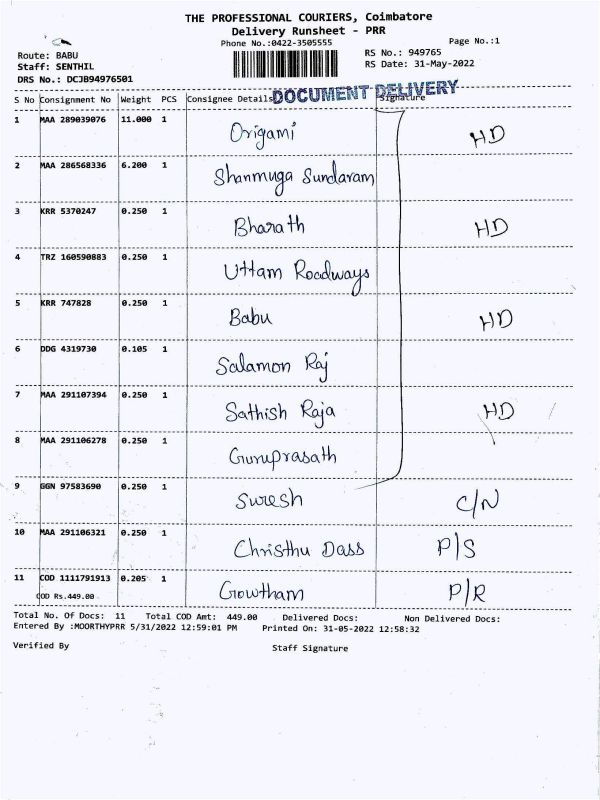 THE PROFESSIONAL COURIERS, Coimbatore
Delivery Runsheet - PRR
Phone No.:0422-3505555 Page No.:1
Route: BABU RS No.: 949765
Staff: SENTHIL RS Date: 31-May-2022
DRS No.: DCJB94976501
DOCUMENT DELIVERY
S No Consignment No Weight PCS Consignee Details Signature
1 MAA 289039076 11.000 1 Origami HD
2 MAA 286568336 6.200 1 Shanmuga Sundaram
3 KRR 5370247 0.250 1 Bharath HD
4 TRZ 160590883 0.250 1 Uttam Roadways
5 KRR 747828 0.250 1 Babu HD
6 DDG 4319730 0.105 1 Salamon Raj
7 MAA 291107394 0.250 1 Sathish Raja HD
8 MAA 291106278 0.250 1 Guruprasath
9 GGN 97583690 0.250 1 Suresh C/N
10 MAA 291106321 0.250 1 Christhu Dass P/S
11 COD 1111791913 0.205 1 Gowtham P/R
COD Rs.449.00
Total No. Of Docs: 11 Total COD Amt: 449.00 Delivered Docs: Non Delivered Docs:
Entered By :MOORTHYPRR 5/31/2022 12:59:01 PM Printed On: 31-05-2022 12:58:32
Verified By Staff Signature